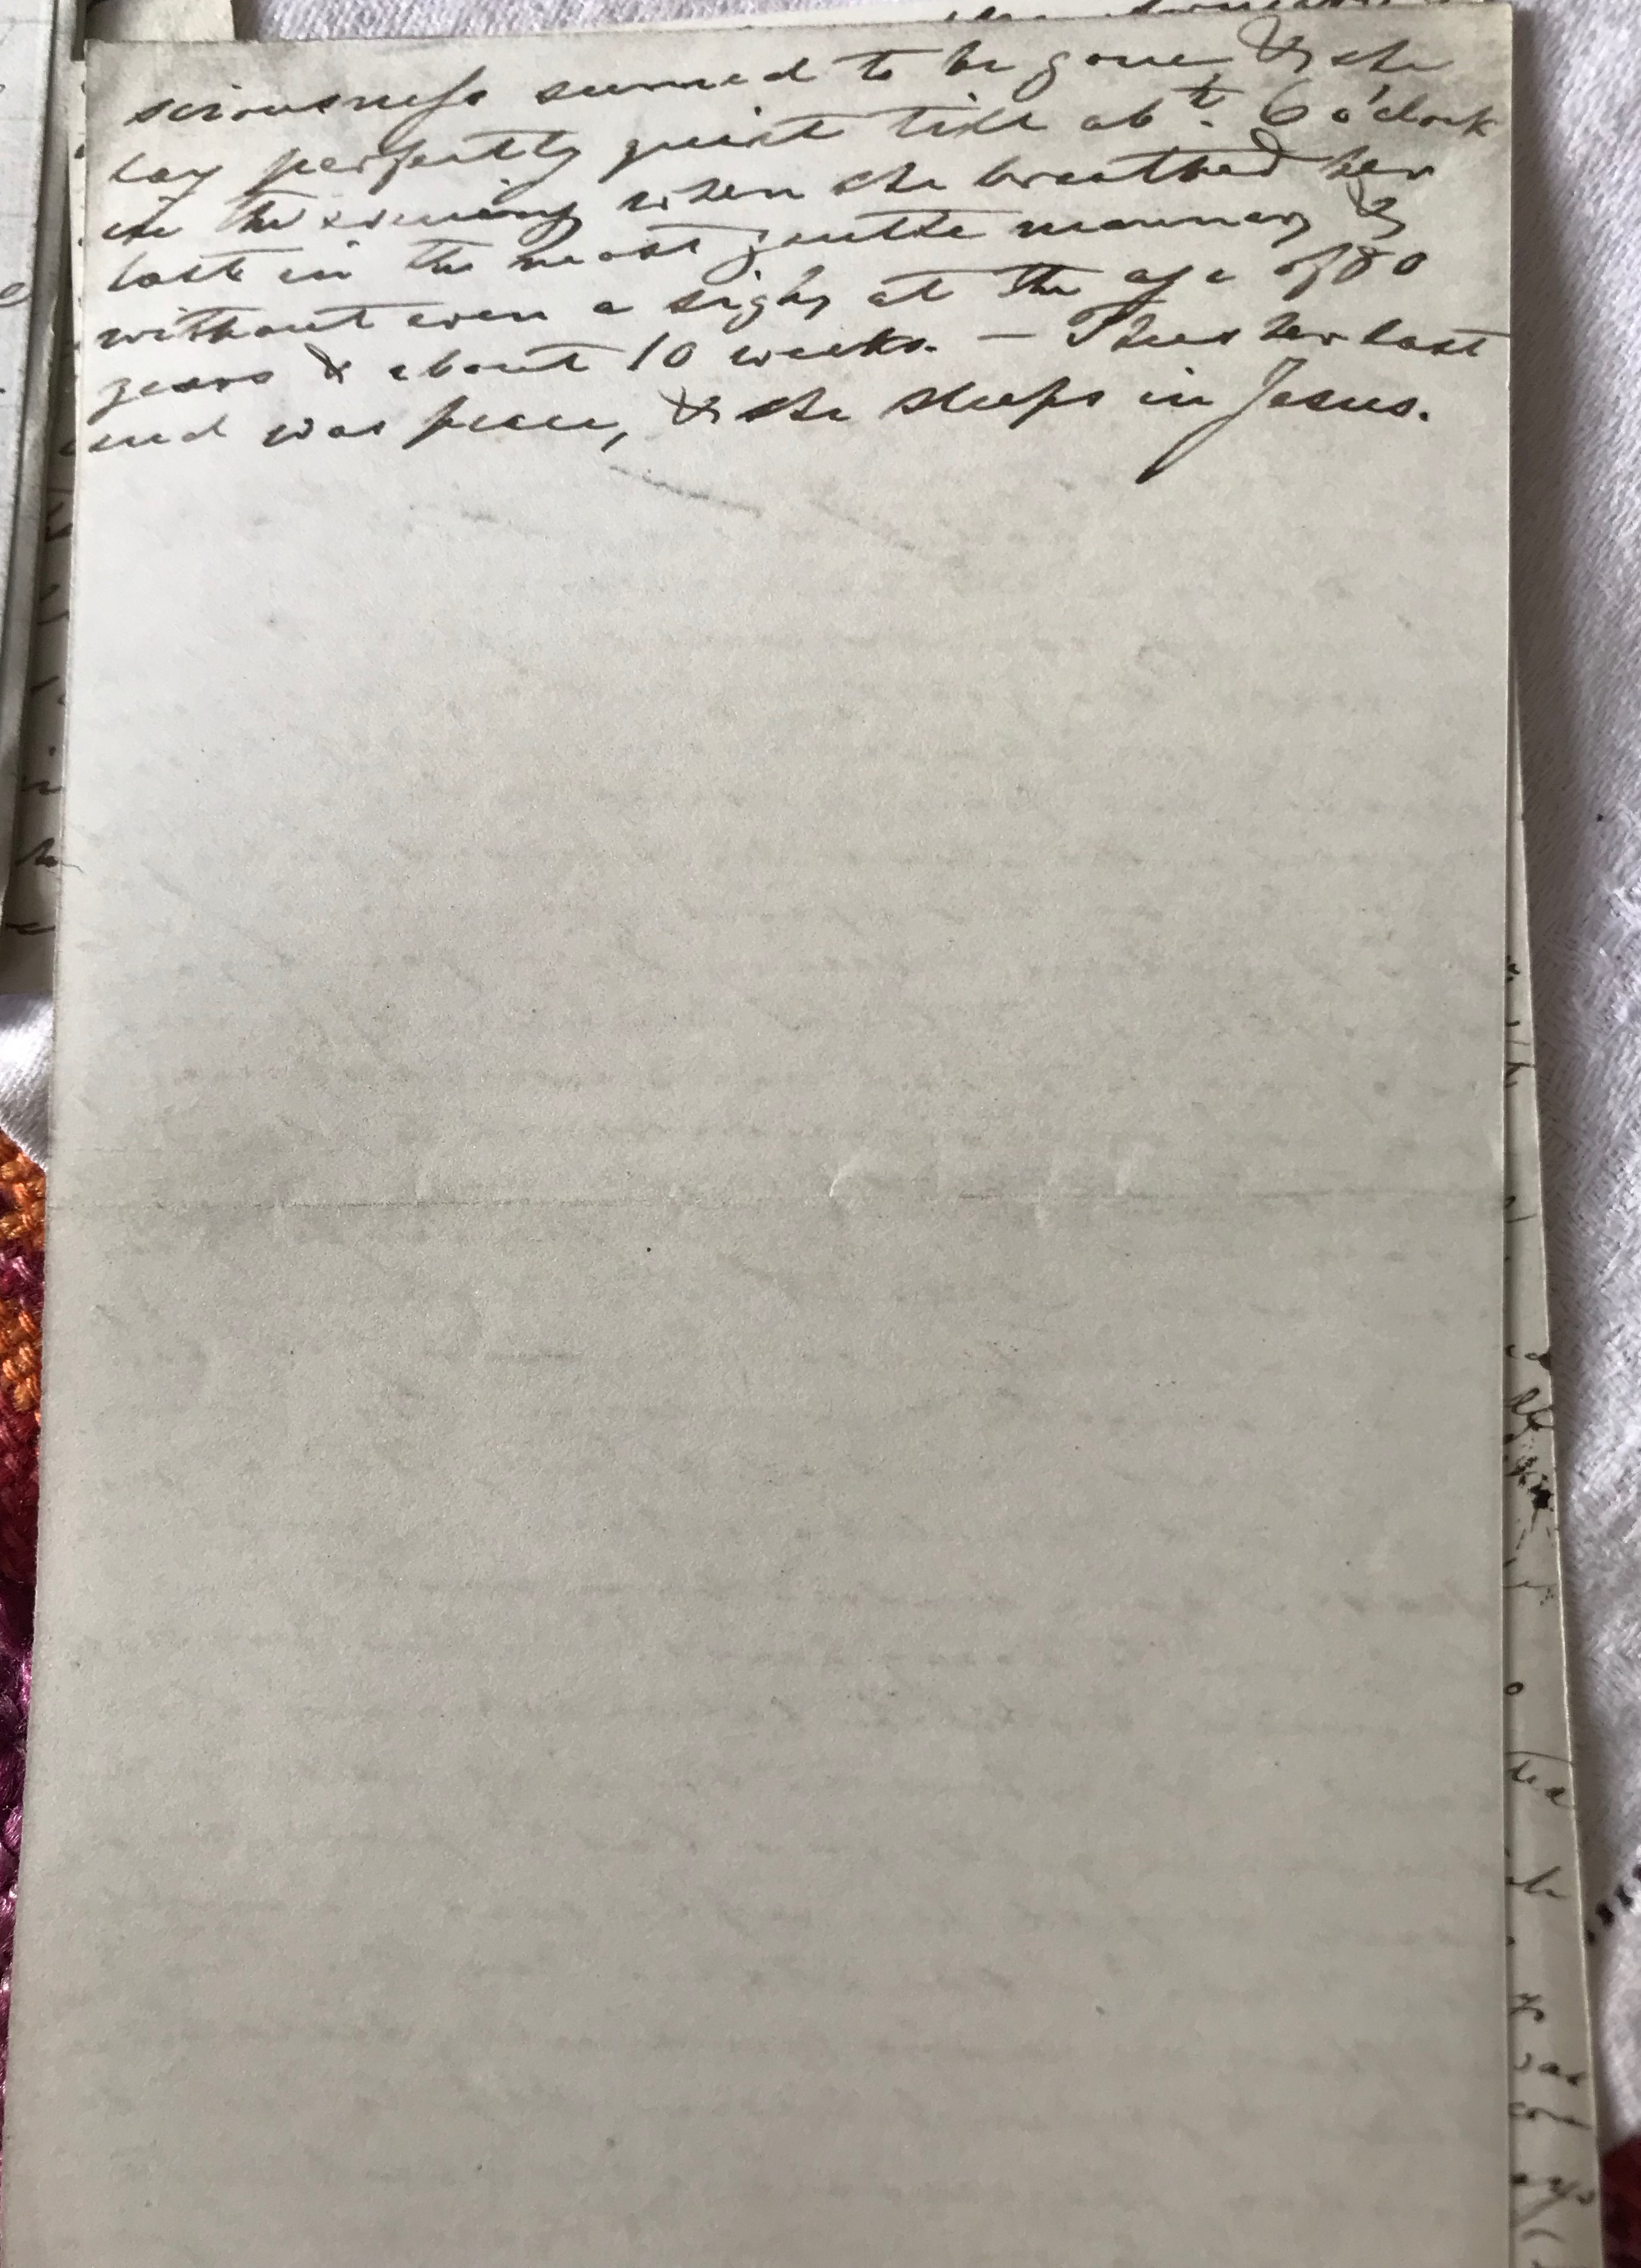 seriousness seemed to be gone & she
lay perfectly quiet till abt. 6 o'clock
in the evening when she breathed her
last in the most gentle manner, &
without even a sigh, at the age of 80
years & about 10 weeks. — Thus her last
end was peace, & she sleeps in Jesus.